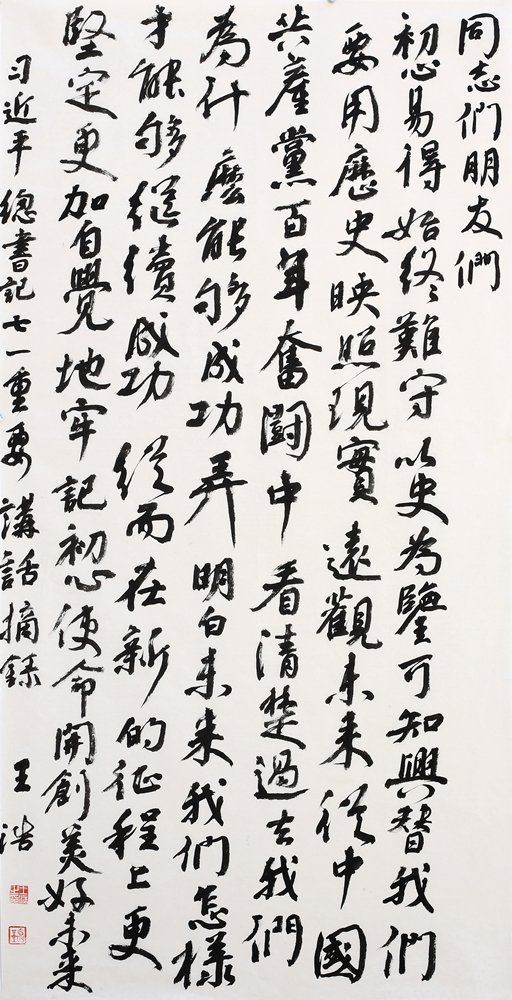 同志們朋友們
初心易得始終難守以史為鑒可知興替我們
要用歷史映照現實遠觀未来從中國
共產黨百年奮鬪中看清楚過去我們
為什麼能够成功弄明白未来我們怎樣
才能够繼續成功從而在新的征程上更
堅定更加自覺地牢記初心使命開創美好未来
习近平總書記七一重要講話摘錄 王浩